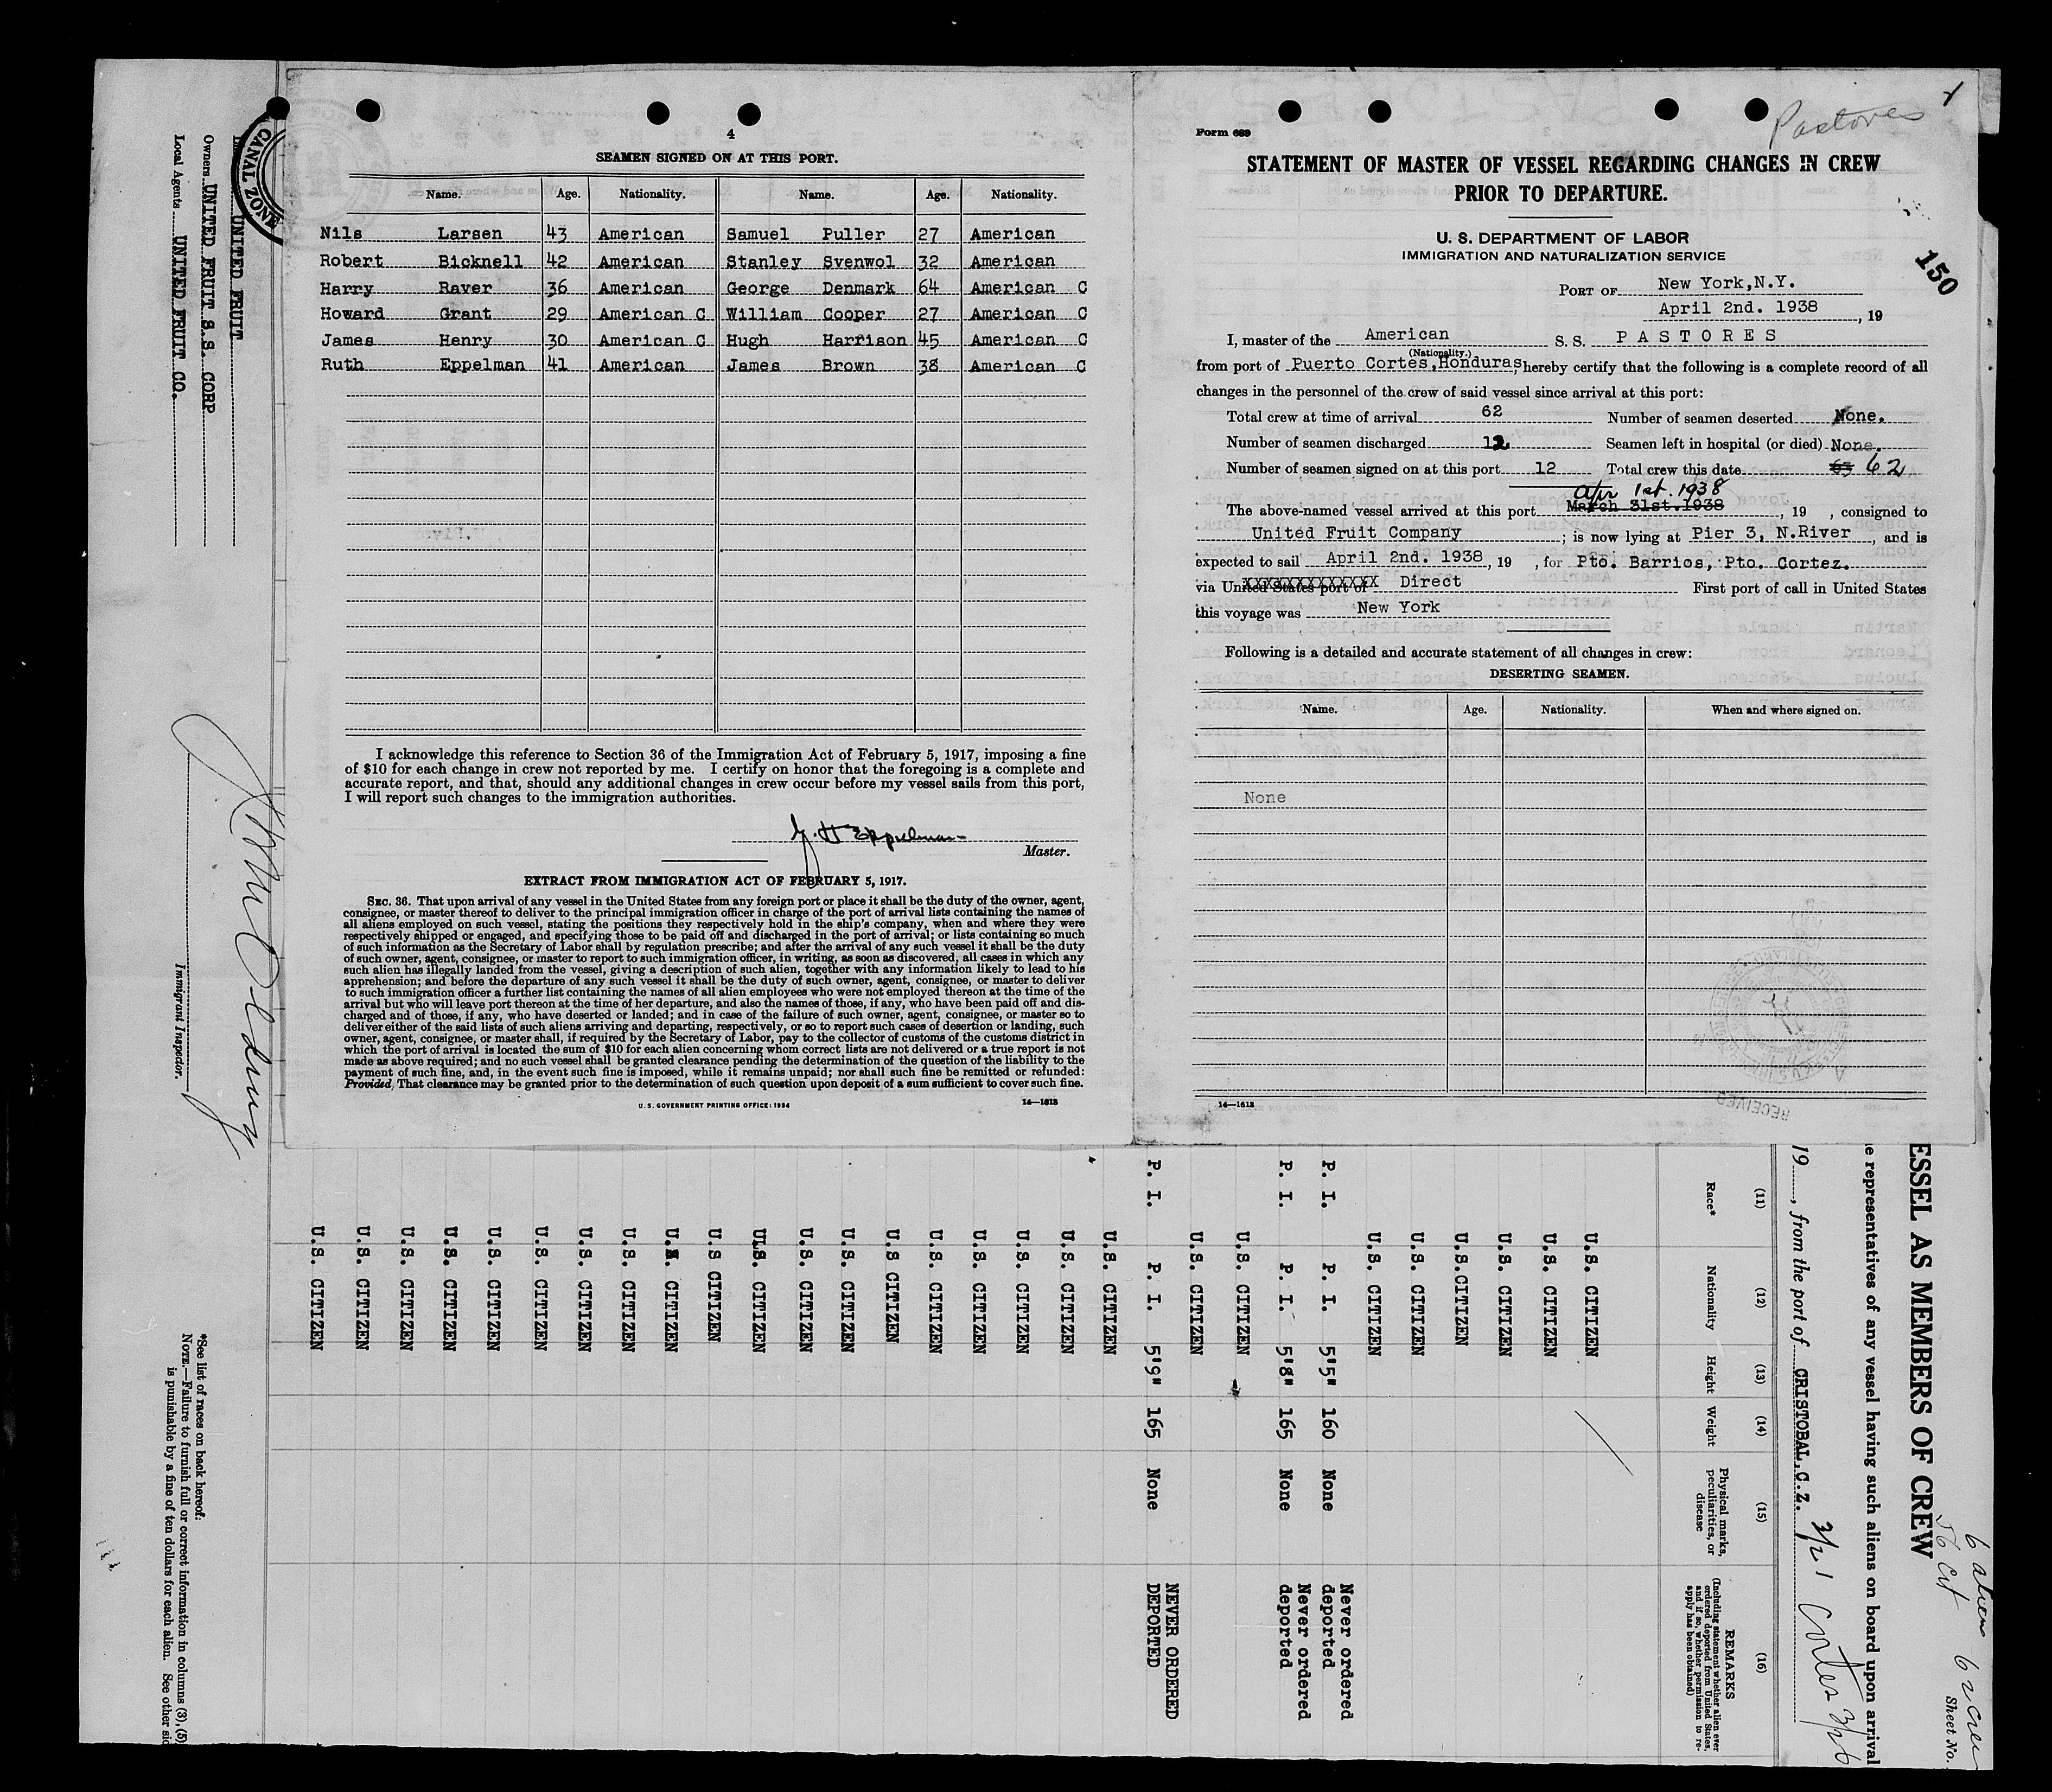 4
SEAMEN SIGNED ON AT THIS PORT.
Name. Age. Nationality. Name. Age. Nationality.
Nils Larsen 43 American Samuel Puller 27 American
Robert Bicknell 42 American Stanley Svenwol 32 American
Harry Raver 36 American George Denmark 64 American C
Howard Grant 29 American C William Cooper 27 American C
James Henry 30 American C Hugh Harrison 45 American C
Ruth Eppelman 41 American James Brown 38 American C
I acknowledge this reference to Section 36 of the Immigration Act of February 5, 1917, imposing a fine
of $10 for each change in crew not reported by me. I certify on honor that the foregoing is a complete and
accurate report, and that, should any additional changes in crew occur before my vessel sails from this port,
I will report such changes to the immigration authorities.
H Eppelman
Master.
EXTRACT FROM IMMIGRATION ACT OF FEBRUARY 5, 1917.
SEC. 36. That upon arrival of any vessel in the United States from any foreign port or place it shall be the duty of the owner, agent,
consignee, or master thereof to deliver to the principal immigration officer in charge of the port of arrival lists containing the names of
all aliens employed on such vessel, stating the positions they respectively hold in the ship's company, when and where they were
respectively shipped or engaged, and specifying those to be paid off and discharged in the port of arrival; or lists containing so much
of such information as the Secretary of Labor shall by regulation prescribe; and after the arrival of any such vessel it shall be the duty
of such owner, agent, consignee, or master to report to such immigration officer, in writing, as soon as discovered, all cases in which any
such alien has illegally landed from the vessel, giving a description of such alien, together with any information likely to lead to his
apprehension; and before the departure of any such vessel it shall be the duty of such owner, agent, consignee, or master to deliver
to such immigration officer a further list containing the names of all alien employees who were not employed thereon at the time of the
arrival but who will leave port thereon at the time of her departure, and also the names of those, if any, who have been paid off and dis-
charged and of those, if any, who have deserted or landed; and in case of the failure of such owner, agent, consignee, or master so to
deliver either of the said lists of such aliens arriving and departing, respectively, or so to report such cases of desertion or landing, such
owner, agent, consignee, or master shall, if required by the Secretary of Labor, pay to the collector of customs of the customs district in
which the port of arrival is located the sum of $10 for each alien concerning whom correct lists are not delivered or a true report is not
made as above required; and no such vessel shall be granted clearance pending the determination of the question of the liability to the
payment of such fine, and, in the event such fine is imposed, while it remains unpaid; nor shall such fine be remitted or refunded:
Provided, That clearance may be granted prior to the determination of such question upon deposit of a sum sufficient to cover such fine.
U.S. GOVERNMENT PRINTING OFFICE: 1934 14—1613
Pastores
Form 689
STATEMENT OF MASTER OF VESSEL REGARDING CHANGES IN CREW
PRIOR TO DEPARTURE.
U. S. DEPARTMENT OF LABOR
IMMIGRATION AND NATURALIZATION SERVICE
150
PORT OF New York, N.Y.
April 2nd. 1938, 19
I, master of the American S. S. PASTORES
(Nationality.)
from port of Puerto Cortes, Honduras, hereby certify that the following is a complete record of all
changes in the personnel of the crew of said vessel since arrival at this port:
Total crew at time of arrival 62 Number of seamen deserted None.
Number of seamen discharged 12 Seamen left in hospital (or died) None.
Number of seamen signed on at this port 12 Total crew this date 63 62
Apr 1st. 1938
The above-named vessel arrived at this port March 31st. 1938, 19 , consigned to
United Fruit Company ; is now lying at Pier 3, N.River, and is
expected to sail April 2nd. 1938, 19 , for Pto. Barrios, Pto. Cortez.
via United States port of XXXXXXXXXXXXX Direct First port of call in United States
this voyage was New York
Following is a detailed and accurate statement of all changes in crew:
DESERTING SEAMEN.
Name. Age. Nationality. When and where signed on.
None
14—1613
RECEIVED
CANAL ZONE
UNITED FRUIT
Owners UNITED FRUIT S.S. CORP
Local Agents UNITED FRUIT CO.
Immigrant Inspector.
ESSEL AS MEMBERS OF CREW
6 aliens 62 crew
56 cit
Sheet No.
e representatives of any vessel having such aliens on board upon arrival
19 , from the port of CRISTOBAL, C.Z. 3/21 Cortes 3/26
(11) (12) (13) (14) (15) (16)
Race* Nationality Height Weight Physical marks, peculiarities, or disease REMARKS (Including statement whether alien ever ordered deported from United States, and if so, whether permission to reapply has been obtained)
U.S. CITIZEN
U.S. CITIZEN
U.S. CITIZEN
U.S.CITIZEN
U.S. CITIZEN
U.S. CITIZEN
P. I. P. I. 5'5" 160 None Never ordered deported
P. I. P. I. 5'8" 165 None Never ordered deported
U.S. CITIZEN
U.S. CITIZEN
P. I. P. I. 5'9" 165 None NEVER ORDERED DEPORTED
U.S. CITIZEN
U.S. CITIZEN
U.S. CITIZEN
U.S. CITIZEN
U.S. CITIZEN
U.S CITIZEN
U.S. CITIZEN
U.S. CITIZEN
U.S. CITIZEN
U.S CITIZEN
U.S. CITIZEN
U.S. CITIZEN
U.S. CITIZEN
U.S. CITIZEN
U.S. CITIZEN
U.S. CITIZEN
U.S. CITIZEN
U.S. CITIZEN
U.S. CITIZEN
*See list of races on back hereof.
NOTE.—Failure to furnish full or correct information in columns (3), (5)
is punishable by a fine of ten dollars for each alien. See other sid